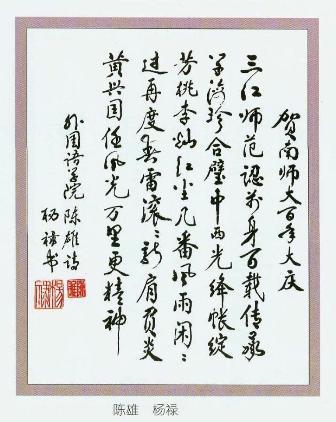 贺南师大百年大庆
三江师范認前身百载传承
学珍合璧中西光绛帐绽
芳桃李灿红尘几番风雨闲〻
过再度春雷滚〻新肩负炎
黄兴国任风光万里更精神
外国语学院 陈雄诗
杨禄书
陈雄 杨禄